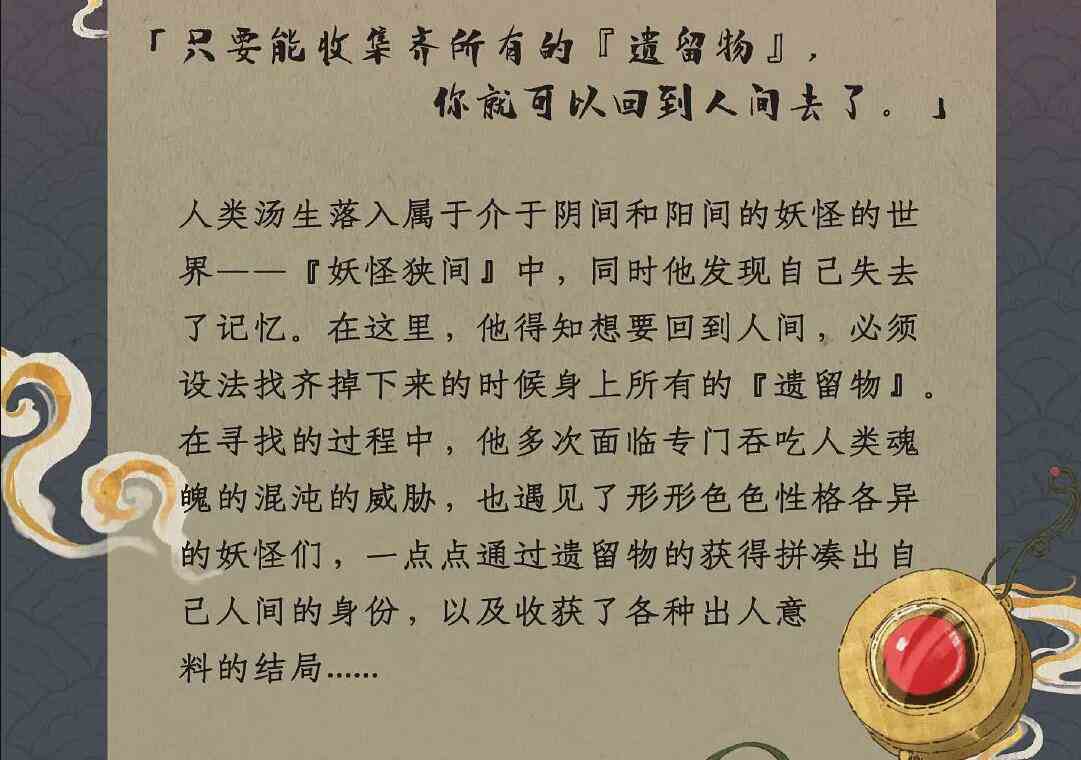 「只要能收集齐所有的『遗留物』，
你就可以回到人间去了。」
人类汤生落入属于介于阴间和阳间的妖怪的世
界——『妖怪狭间』中，同时他发现自己失去
了记忆。在这里，他得知想要回到人间，必须
设法找齐掉下来的时候身上所有的『遗留物』。
在寻找的过程中，他多次面临专门吞吃人类魂
魄的混沌的威胁，也遇见了形形色色性格各异
的妖怪们，一点点通过遗留物的获得拼凑出自
己人间的身份，以及收获了各种出人意
料的结局……